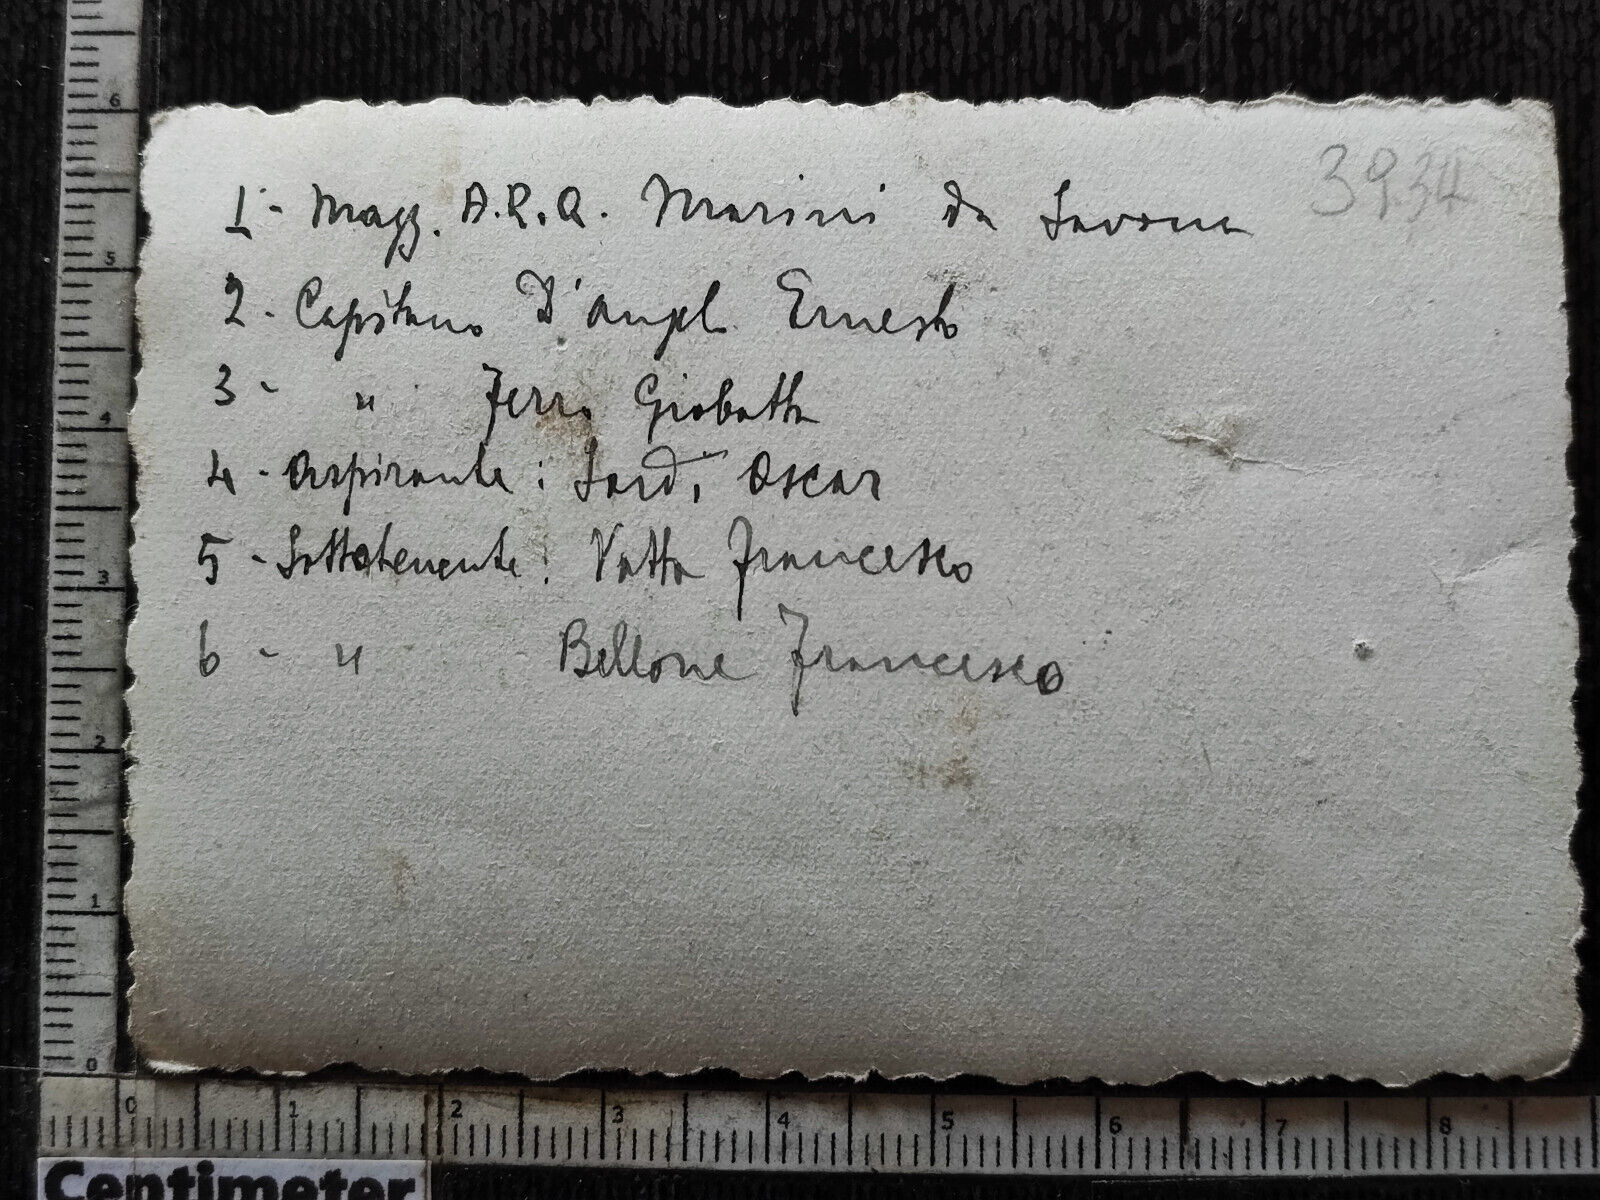 3934
1- Magg. A.R.Q. Marini da Savona
2- Capitano D'Angelo Ernesto
3- " Ferro Giobatta
4- Aspirante: Sardi Oscar
5- Sottotenente: Vatta Francesco
6- " Bellone Francesco
6
5
4
3
2
1
0
0 1 2 3 4 5 6 7 8
Centimeter